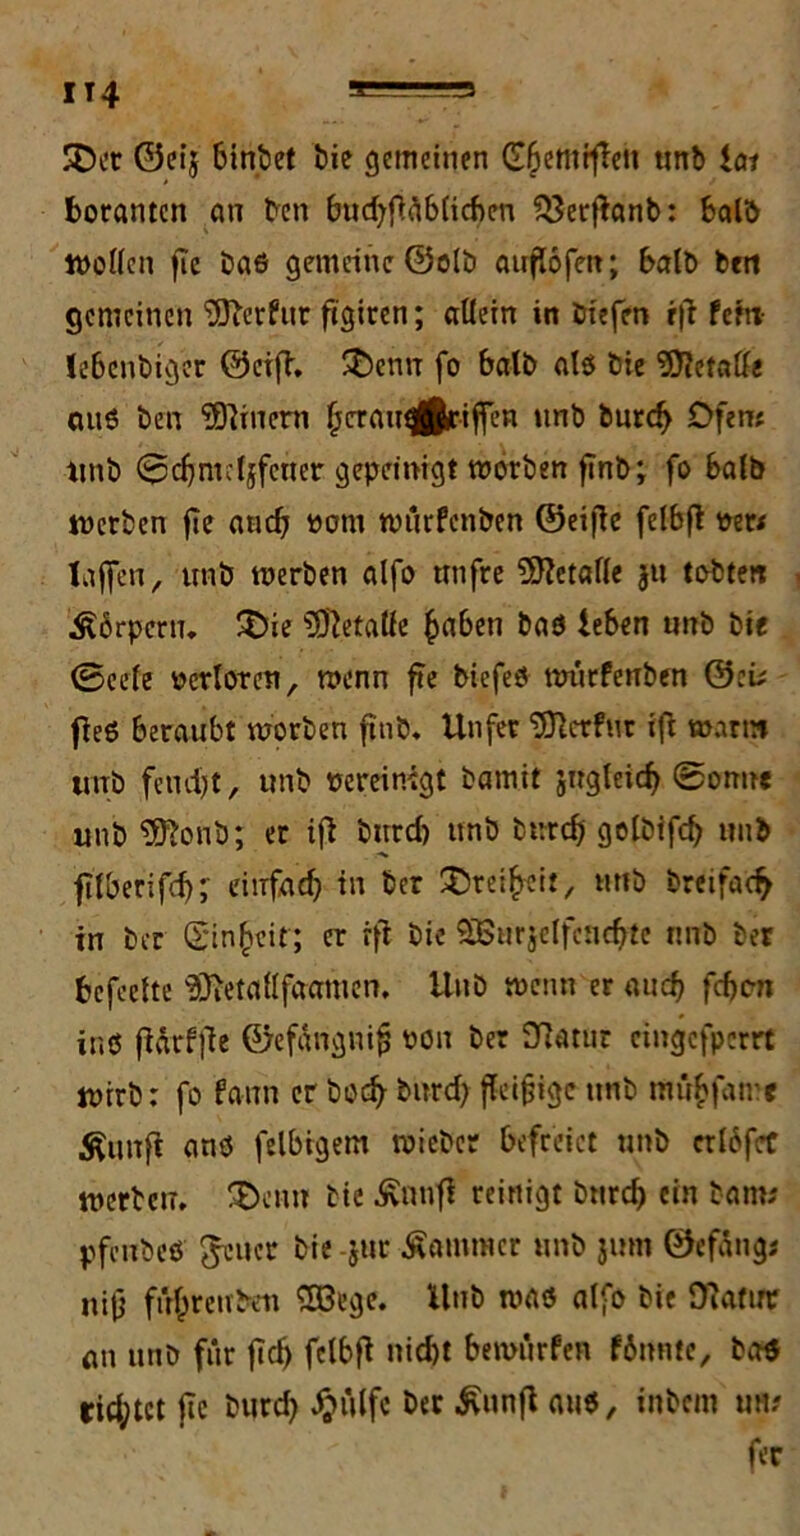 114
Der Geiz bindet die gemeinen Chemisten und La-
boranten an den buchstäblichen Verstand: bald
wollen sie das gemeine Gold auflösen; bald den
gemeinen Merkur figiren; allein in diesen ist kein
lebendiger Geist. Denn so bald als die Metalle
aus den Minern herausgerissen und durch Ofen-
und Schmelzfeuer gepeinigt worden sind; so bald
werden sie auch vom würkenden Geiste selbst ver-
lassen, und werden also unsre Metalle zu todten
Körpern. Die Metalle haben das Leben und die
Seele verloren, wenn sie dieses würkenden Gei-
stes beraubt worden sind. Unser Merkur ist warm
und feucht, und vereinigt damit zugleich Sonne
und Mond; er ist durch und durch goldisch und
silberisch; einfach in der Dreiheit, und dreifach
in der Einheit; er ist die Wurzelfeuchte und der
beseelte Metallsaamen. Und wenn er auch schon
ins stärkste Gefängniß von der Natur eingesperrt
wird: so kann er doch durch fleißige und mühsame
Kunst aus selbigem wieder befreiet und erlöset
werden. Denn die Kunst reinigt durch ein dam-
pfendes Feuer die zur Kammer und zum Gefäng-
niß führenden Wege. Und was also die Natur
an und für sich selbst nicht bewürken könnte, das
richtet sie durch Hülfe der Kunst aus, indem un-
ser